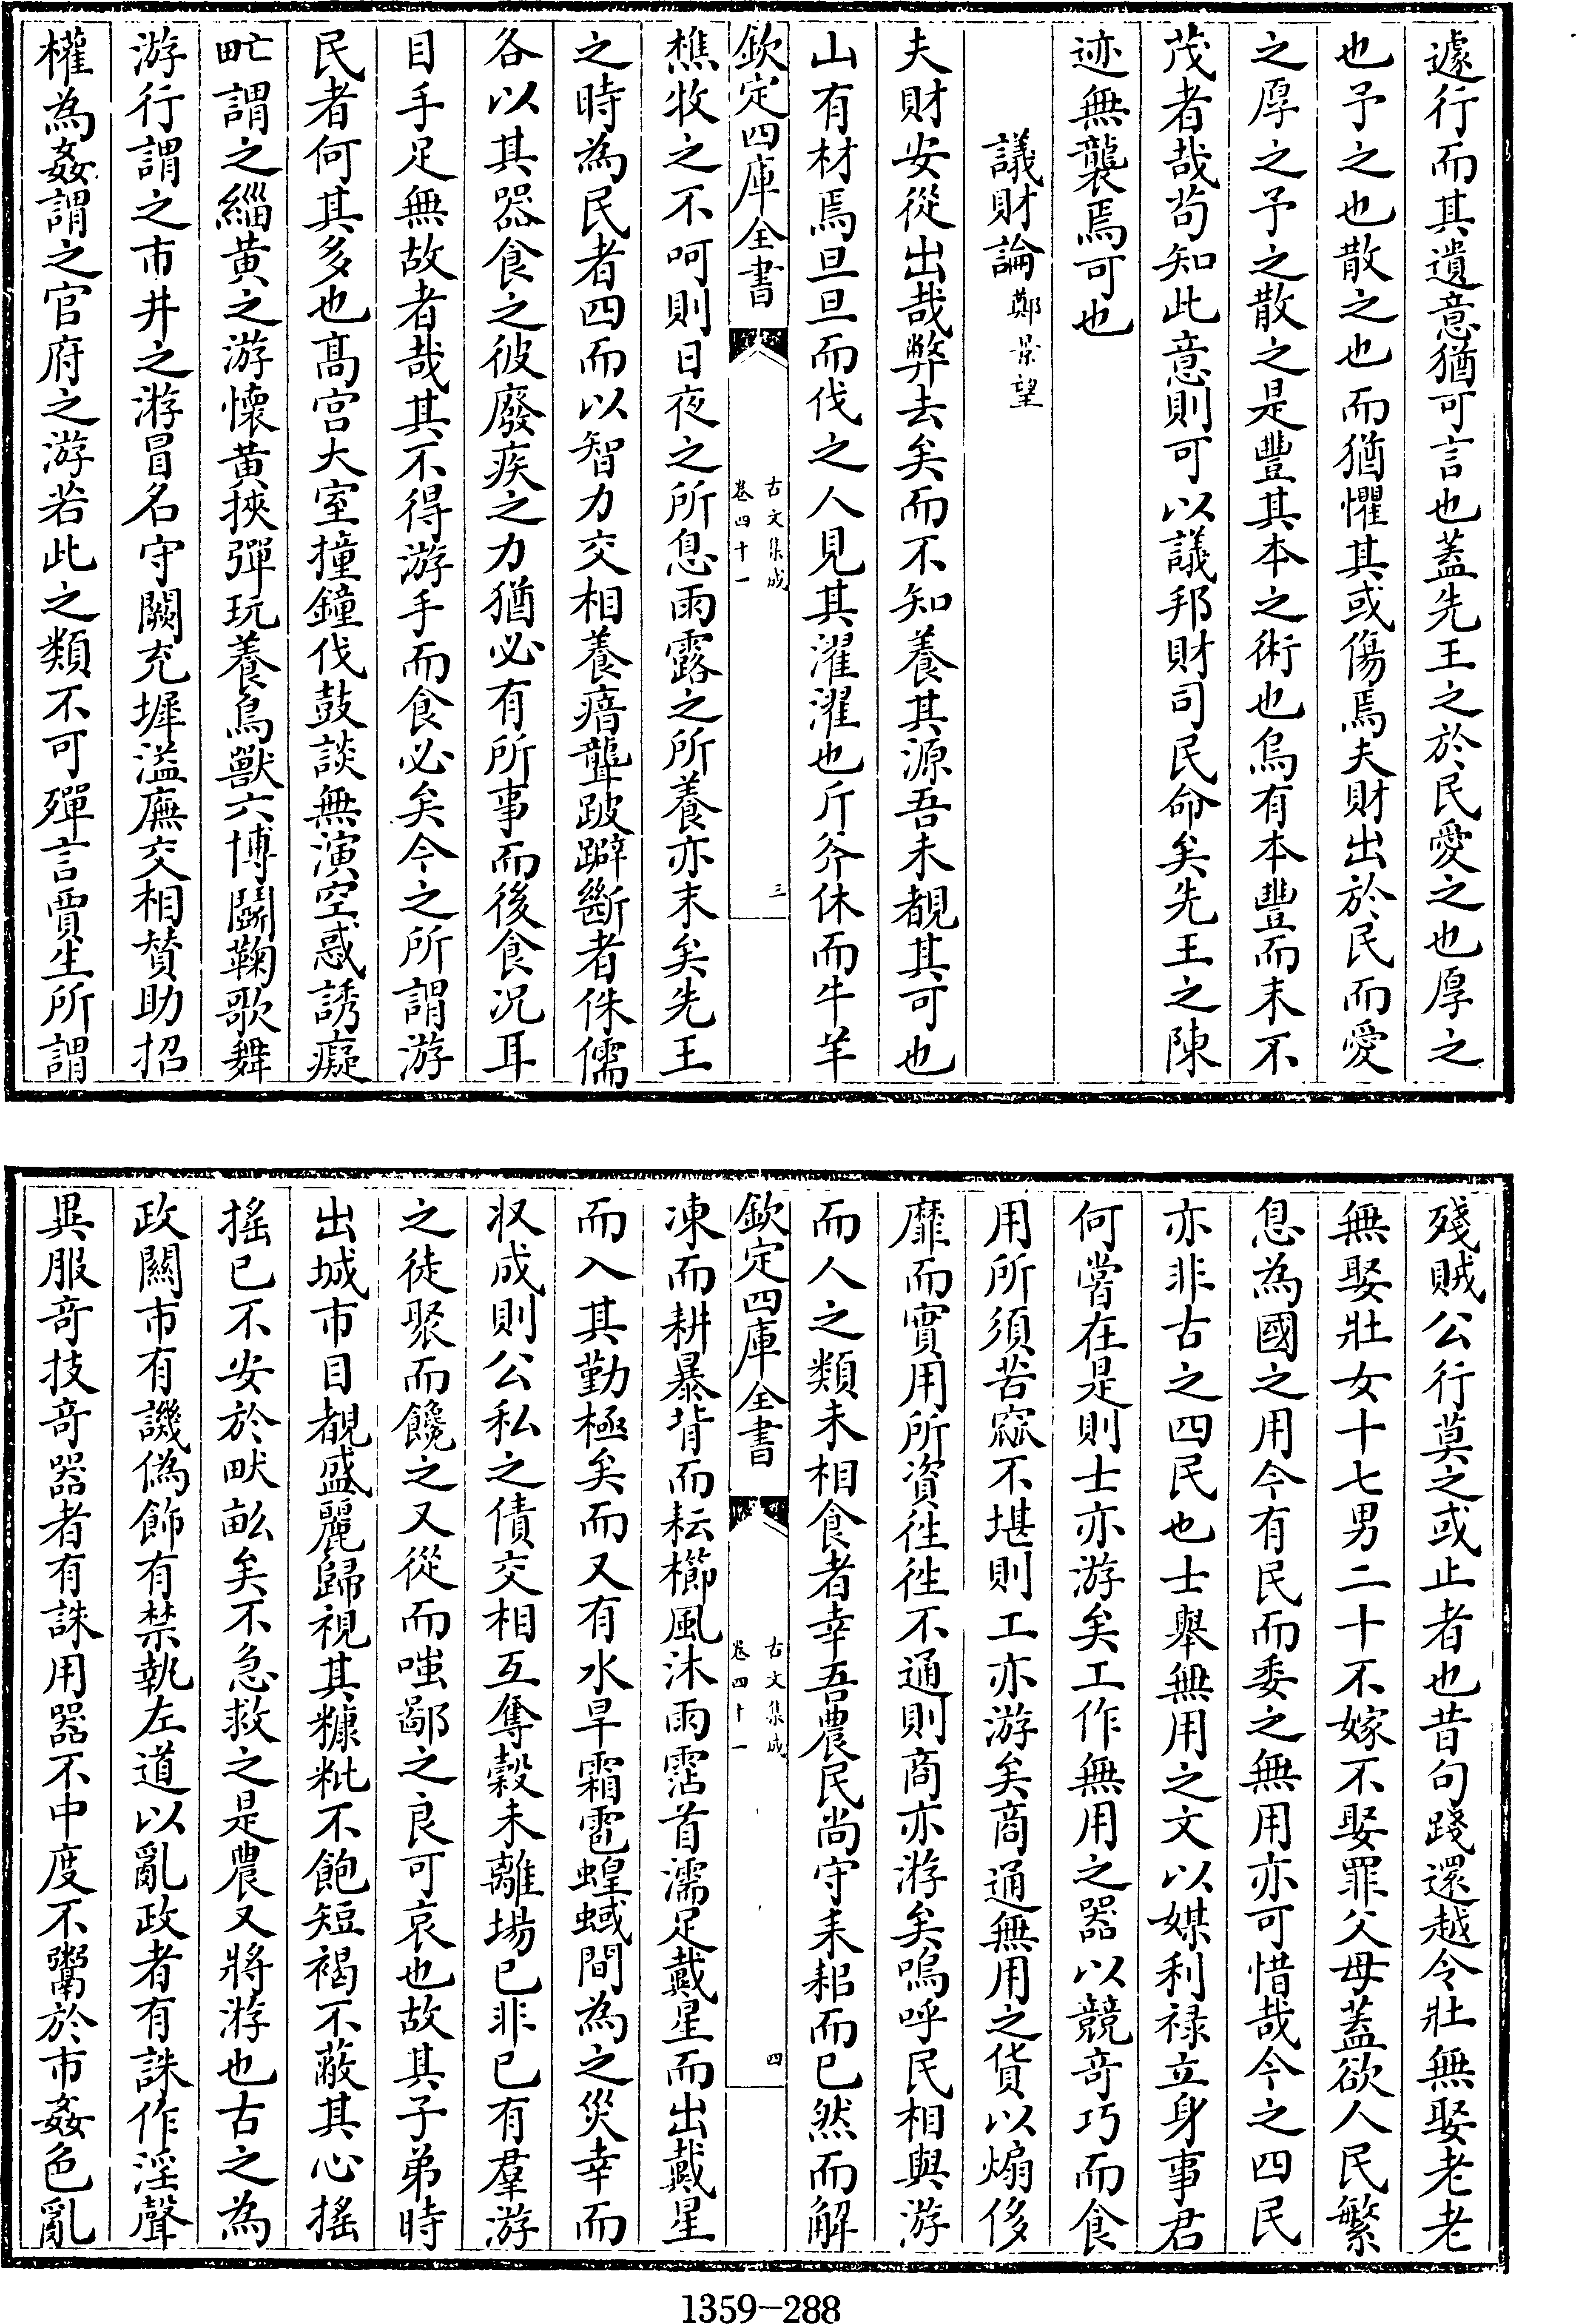 遽行而其遺意猶可言也蓋先王之於民愛之也厚之
也予之也散之也而猶懼其或傷焉夫財出於民而愛
之厚之予之散之是豐其本之術也烏有本豐而末不
茂者哉茍知此意則可以議邦財司民命矣先王之陳
迹無襲焉可也
議財論 鄭景望
夫財安從出哉弊去矣而不知養其源吾未覩其可也
山有材焉旦旦而伐之人見其濯濯也斤斧休而牛羊
欽定四庫全書 古文集成 卷四十一 三
樵牧之不呵則日夜之所息雨露之所養亦末矣先王
之時為民者四而以智力交相養瘖聾跛躃斷者侏儒
各以其器食之彼廢疾之力猶必有所事而後食况耳
目手足無故者哉其不得游手而食必矣今之所謂游
民者何其多也髙宫大室撞鐘伐鼓談無演空惑誘癡
甿謂之緇黄之游懷黄挾彈玩養鳥獸六博鬭鞠歌舞
游行謂之市井之游冒名守闕充墀溢廡交相賛助招
權為姦謂之官府之游若此之類不可殫言賈生所謂
殘賊公行莫之或止者也昔句踐還越令壯無娶老老
無娶壯女十七男二十不嫁不娶罪父母蓋欲人民繁
息為國之用今有民而委之無用亦可惜哉今之四民
亦非古之四民也士舉無用之文以媒利禄立身事君
何嘗在是則士亦游矣工作無用之器以競竒巧而食
用所須苦窳不堪則工亦游矣商通無用之貨以煽侈
靡而實用所資徃徃不通則商亦游矣嗚呼民相與游
而人之類未相食者幸吾農民尚守耒耜而已然而解
欽定四庫全書 古文集成 卷四十一 四
凍而耕暴背而耘櫛風沐雨霑首濡足戴星而出戴星
而入其勤極矣而又有水旱霜雹蝗蜮間為之災幸而
収成則公私之債交相互奪穀未離塲已非已有羣游
之徒聚而饞之又從而嗤鄙之良可哀也故其子弟時
出城市目覩盛麗歸視其糠粃不飽短褐不蔽其心揺
揺已不安於畎畝矣不急救之是農又將游也古之為
政關市有譏偽飾有禁執左道以亂政者有誅作淫聲
異服竒技竒器者有誅用器不中度不鬻於市姦色亂
1359—288